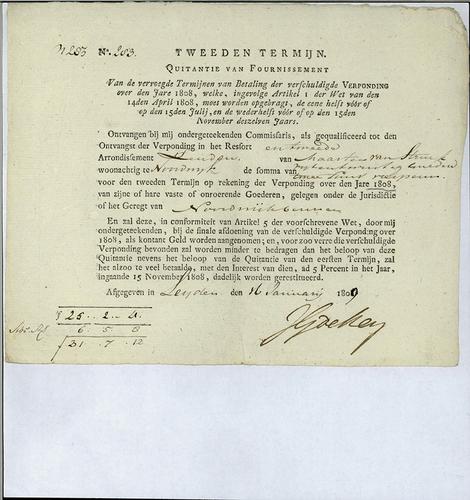 N. 283 No. 283. TWEEDEN TERMIJN.
QUITANTIE VAN FOURNISSEMENT
Van de vervoegde Termijnen van Betaling der verschuldigde VERPONDING
over den Jare 1808, welke, ingevolge Artikel 1 der Wet van den
14den April 1808, moet worden opgebragt, de eene helft vóór of
op den 15den Julij, en de wederhelft vóór of op den 15den
November deszelven Jaars.
Ontvangen bij mij ondergeteekenden Commisaris, als gequalificeerd tot den
Ontvangst der Verponding in het Ressort en tweede
Arrondissement Leyden van Maarten van Struijk
woonachtig te Noordwijk de somma van
voor den tweeden Termijn op rekening der Verponding over den Jare 1808,
van zijne of hare vaste of onroerende Goederen, gelegen onder de Jurisdictie
of het Geregt van Noordwijkbinnen
En zal deze, in conformiteit van Artikel 5 der voorschreven Wet, door mij
ondergeteekenden, bij de finale afdoening van de verschuldigde Verponding over
1808, als kontant Geld worden aangenomen; en, voor zoo verre die verschuldigde
Verponding bevonden zal worden minder te bedragen dan het beloop van deze
Quitantie nevens het beloop van de Quitantie van den eersten Termijn, zal
het alzoo te veel betaalde, met den Interest van dien, ad 5 Percent in het Jaar,
ingaande 15 November 1808, dadelijk worden gerestitueerd.
Afgegeven in Leyden den 16 Januarij 1809
f 25 .. 2 .. 4.
6 . 5 . 8
f 31 . 7 . 12